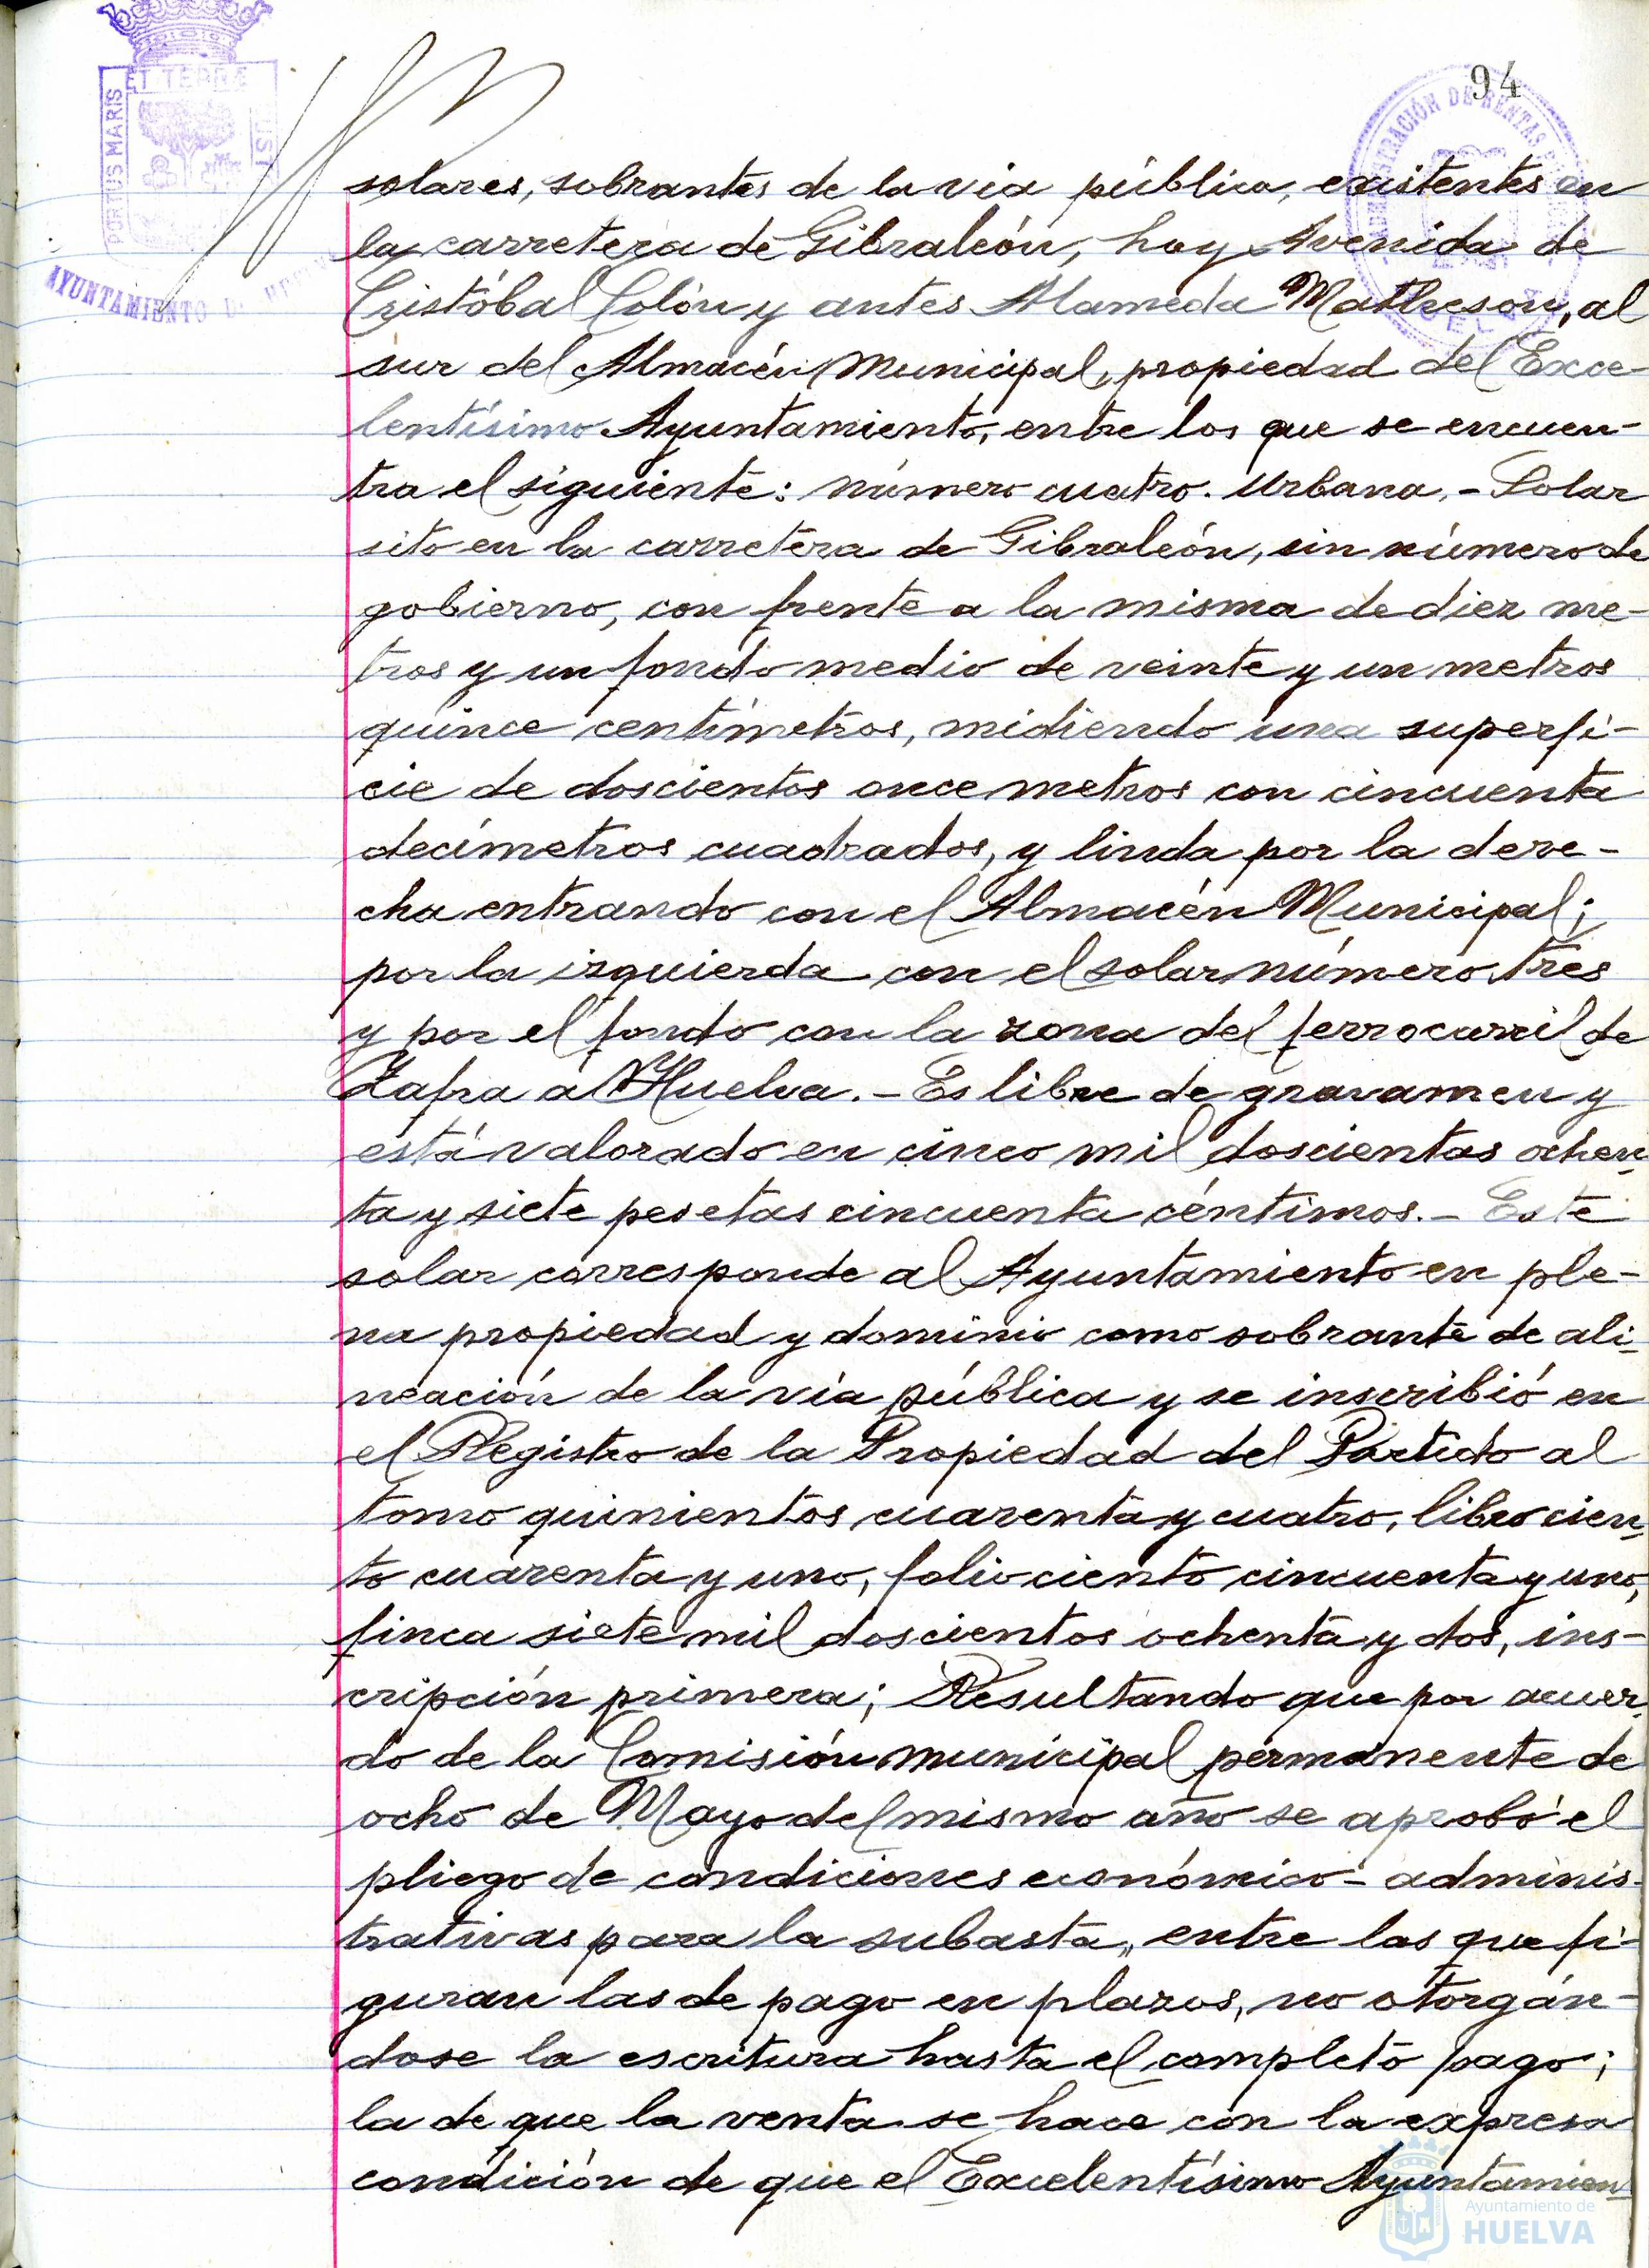 94
ET TERRÆ
PORTUS MARIS
AYUNTAMIENTO DE HUELVA
solares, sobrantes de la via pública, existentes en
la carretera de Gibraleón, hoy Avenida de
Cristóbal Colón y antes Alameda Matheson, al
sur del Almacén Municipal, propiedad del Exce-
lentísimo Ayuntamiento, entre los que se encuen-
tra el siguiente: número cuatro. Urbana.- Solar
sito en la carretera de Gibraleón, sin número de
gobierno, con frente a la misma de diez me-
tros y un fondo medio de veinte y un metros
quince centímetros, midiendo una superfi-
cie de doscientos once metros con cincuenta
decímetros cuadrados, y linda por la dere-
cha entrando con el Almacén Municipal;
por la izquierda con el solar número tres
y por el fondo con la zona del ferrocarril de
Zafra a Huelva.- Es libre de gravamen y
está valorado en cinco mil doscientas ochen-
ta y siete pesetas cincuenta céntimos.- Este
solar corresponde al Ayuntamiento en ple-
na propiedad y dominio como sobrante de ali-
neación de la vía pública y se inscribió en
el Registro de la Propiedad del Partido al
tomo quinientos cuarenta y cuatro, libro cien-
to cuarenta y uno, folio ciento cincuenta y uno,
finca siete mil doscientos ochenta y dos, ins-
cripción primera; Resultando que por acuer-
do de la Comisión municipal permanente de
ocho de Mayo del mismo año se aprobó el
pliego de condiciones económico-adminis-
trativas para la subasta, entre las que fi-
guran las de pago en plazos, no otorgán-
dose la escritura hasta el completo pago;
la de que la venta se hace con la expresa
condición de que el Excelentísimo Ayuntamien-
Ayuntamiento de
HUELVA